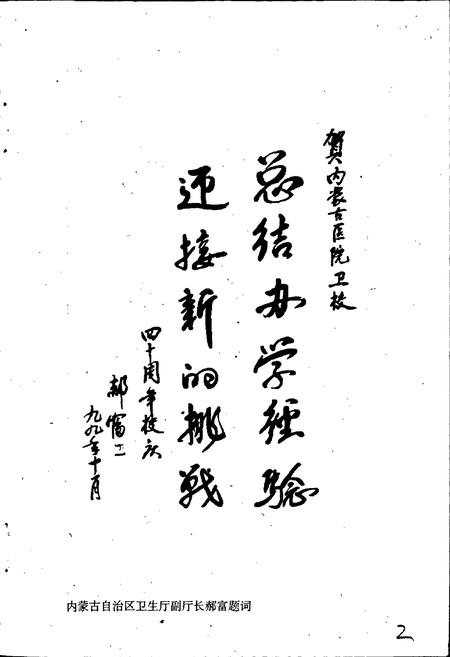 贺内蒙古医院卫校
总结办学经验
迎接新的挑战
四十周年校庆
郝富
九九年十月
内蒙古自治区卫生厅副厅长郝富题词
2